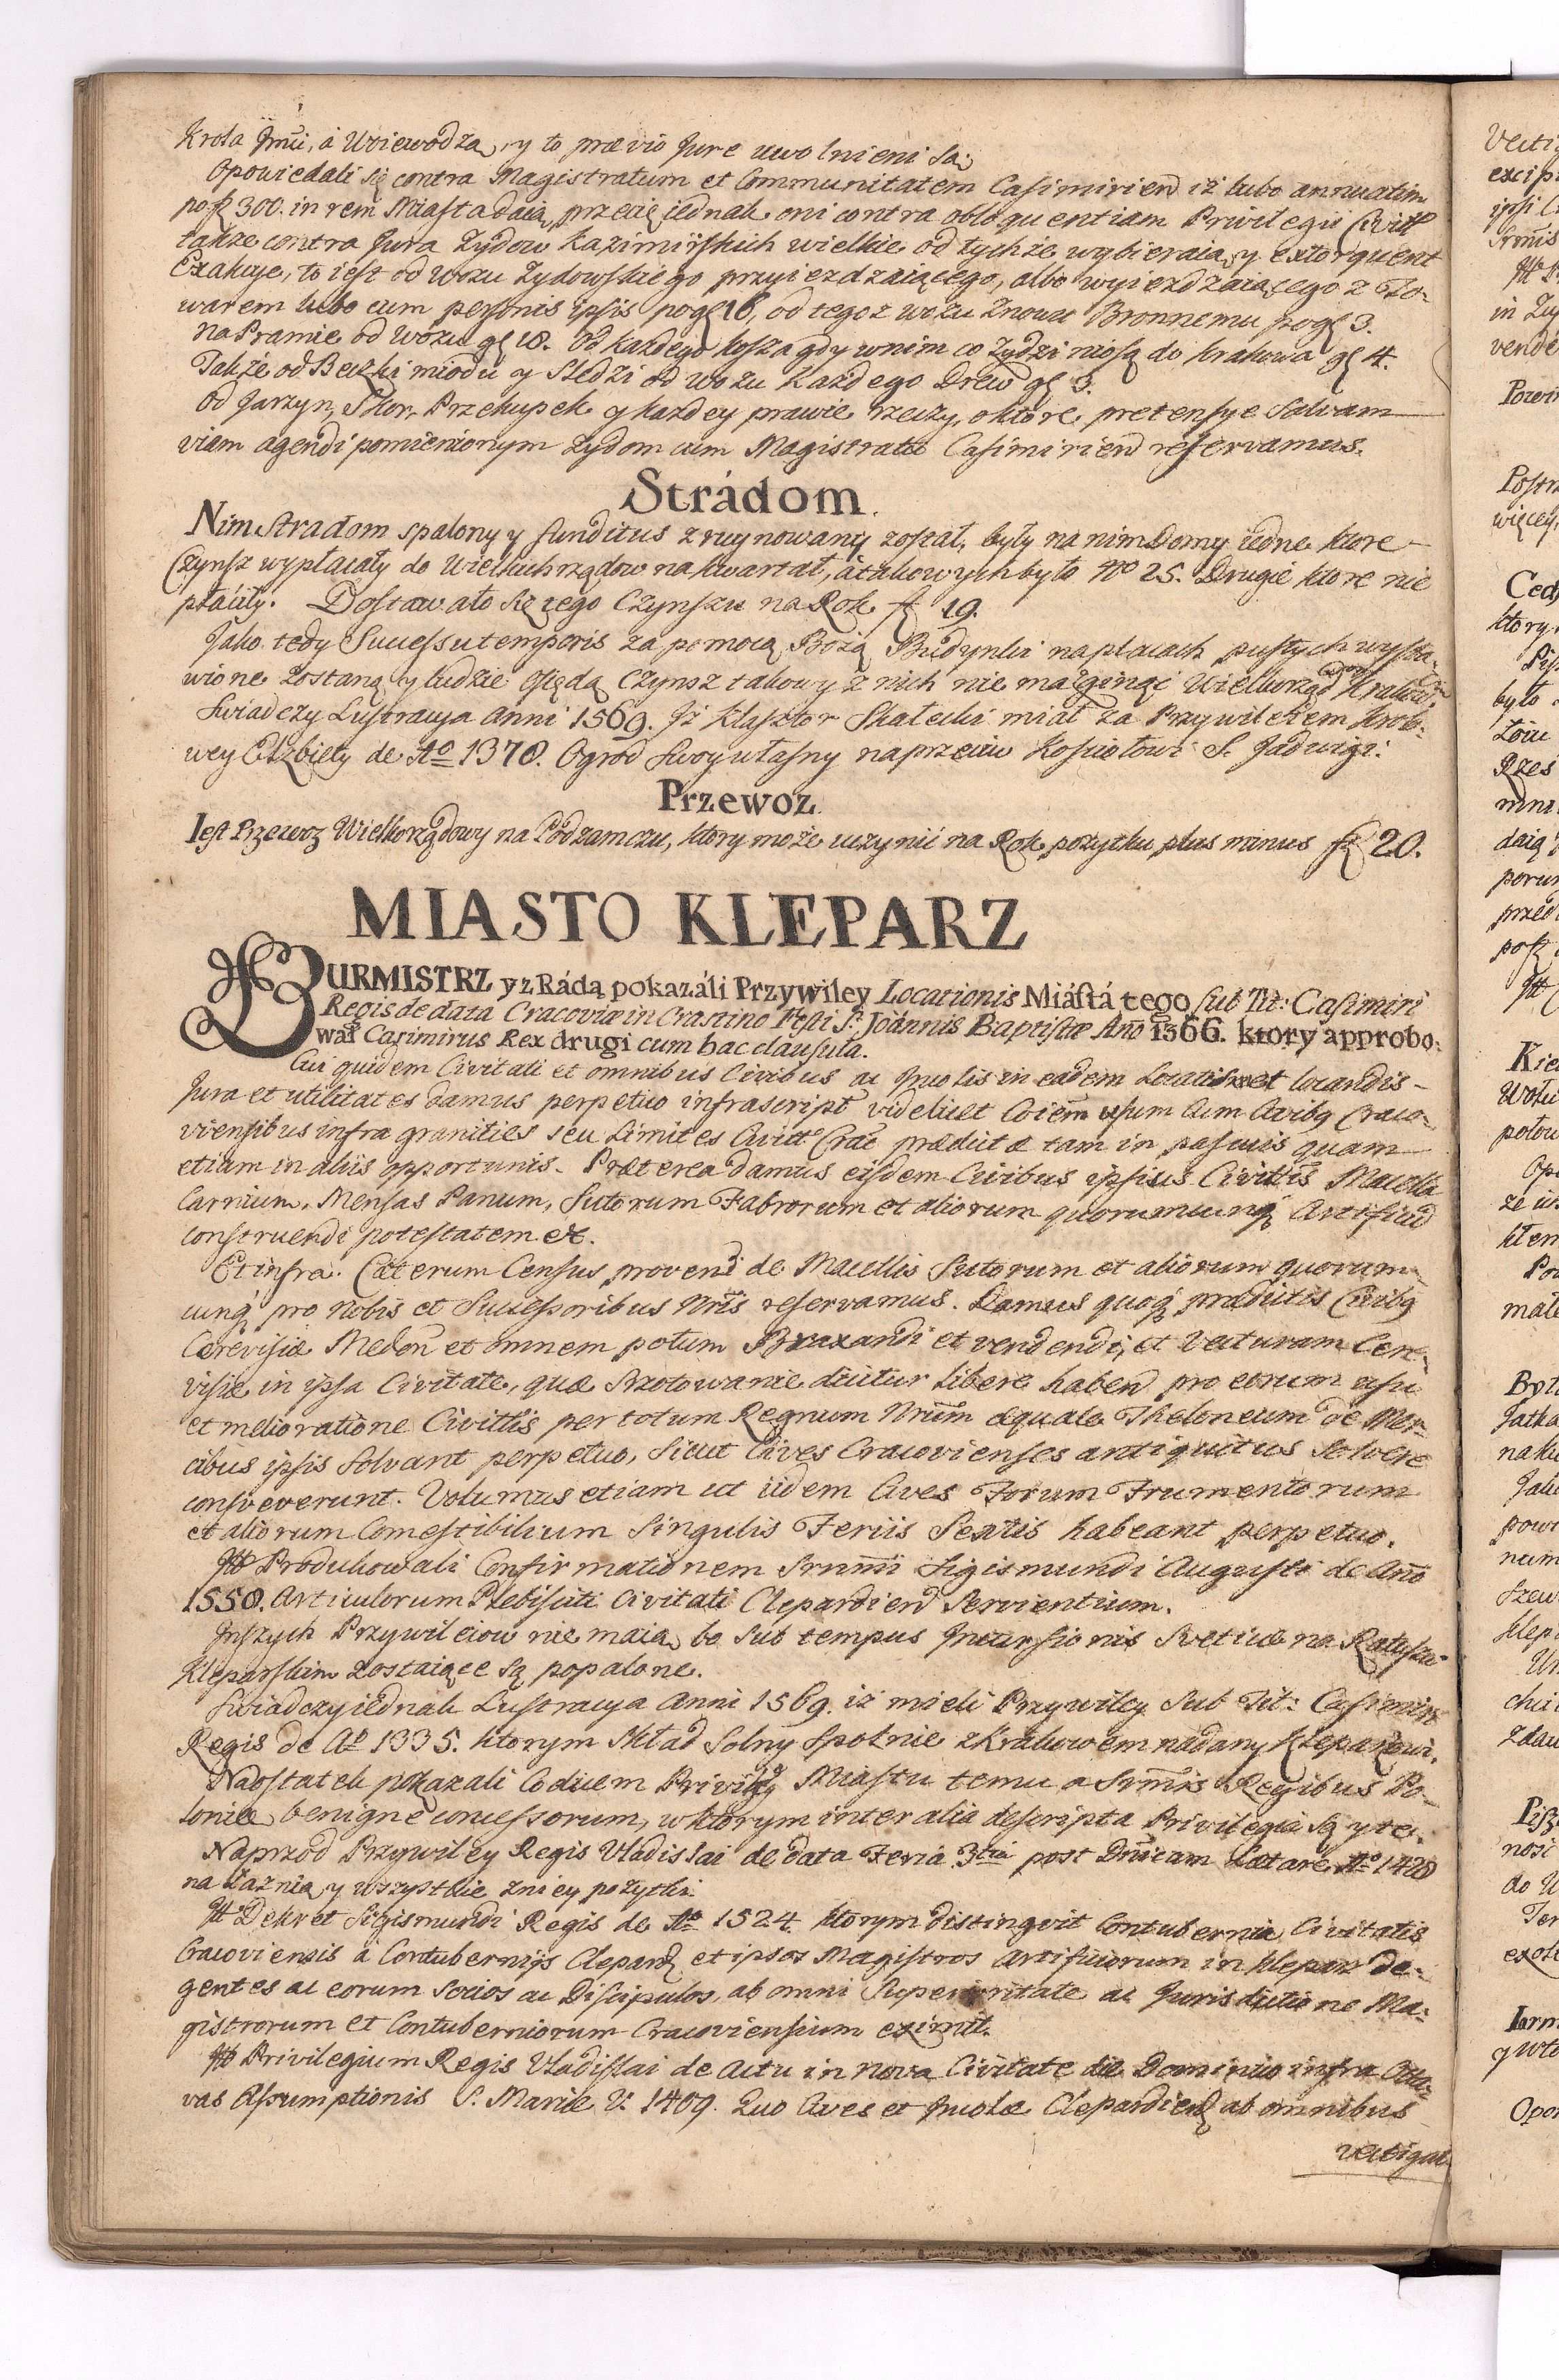 Krola Jmci, á Woiewodzą, y to prævio Jure uwolnieni są.
Opowiedali się contra Magistratum et Communitatem Casimirien iż lubo annuatim
po fl 300. in rem Miasta daią, przecię iednak oni contra obloquentiam Privilegii Civitt
także contra Jura Zydow Kazimirskich wielkie od tychże wybieraią, y extorquent
Exakcye, to iest od wozu Zydowskiego przyiezdzaiącego, albo wyiezdzaiącego z To-
warem lubo cum personis ipsis po gę 16, od tegoż wozu znowu Bronnemu po gę 3.
na Pramie od wozu gę 18. Od każdego kosza gdy w nim co Zydzi niosą do Krakowa gę 4.
Także od Beczki miodu y Sledzi od wozu każdego Drew gę 3.
Od Jarzyn, Skor, Przekupek y każdey prawie rzeczy, o ktore pretensye salvam
viam agendi pomienionym Zydom cum Magistratu Casimirien reservamus.
Strádom.
Nim Stradom spalony y funditus zruynowany został, były na nim Domy iedne ktore
Czynsz wypłacały do Wielkich rządow na kwartał, á takowych było No 25. Drugie ktore nie
płáciły. Dostawało się tego Czynszu na Rok fl 19.
Jako tedy Successu temporis za pomocą Bożą Budynki na placach pustych wysta-
wione zostaną y ludzie osiędą Czynsz takowy z nich nie ma ginąć Wielkorządom Krakow.
Swiadczy Lustracya Anni 1569. Jż Klasztor Skałecki miał za Przywileiem Krolo-
wey Elzbiety de Ao 1378. Ogrod swoy własny naprzeciw Kosciołowi S. Jadwigi.
Przewoz.
Iest Przewoz Wielkorządowy na Podzamczu, ktory może uczynić na Rok pożytku plus minus fl 20.
MIASTO KLEPARZ
BURMISTRZ y z Rádą pokazáli Przywiley Locationis Miástá tego sub Tit: Casimiri
Regis de data Cracoviæ in Crastino Festi S. Joánnis Baptistæ Ano 1366. ktory approbo-
wał Casimirus Rex drugi cum hac clausula.
Cui quidem Civitati et omnibus Civibus ac Jncolis in eadem Locatis et locandis
Jura et utilitates damus perpetuo infrascript videlicet Coiem usum cum Civibq Craco-
viensibus infra granities seu Limites Civitt Crac prædictæ tam in pascuis quam
etiam in aliis opportunis. Præterea damus eisdem Civibus ipsius Civittis Macella
Carnium, Mensas Panum, Sutorum Fabrorum et aliorum quorumcunq Artificud
construendi potestatem etc.
Et infra. Cæterum Census proveni de Macellis Sutorum et aliorum quorum-
cunq pro nobis et Successoribus Nris reservamus. Damus quoq prædictis Civibq
Cerevisiæ Medon et omnem potum Braxandi et vendendi, et Vecturam Cere-
visiæ in ipsa Civitate, quæ Szotowanie dicitur libere habend pro eorum usu
et melioratione Civittis per totum Regnum Nrum æquale Theloneum de Mer-
cibus ipsis solvant perpetuo, sicut Cives Cracovienses antiquitus solvere
consveverunt. Volumus etiam ut iidem Cives Forum Frumentorum
et aliorum Comestibilium singulis Feriis Sextis habeant perpetuo.
Jtt Produkowali Confirmationem Srnmi Sigismundi Augusti de Ano
1558. Articulorum Plebisciti Civitati Clepardien Servientium.
Jnszych Przywileiow nie maią, bo sub tempus Jncursionis Sveticæ na Ratuszu
Kleparskim zostaiące są popalone.
Swiadczy iednak Lustracya Anni 1569. iż mieli Przywiley sub Tit: Casimiri
Regis de Ao 1335. ktorym Skład Solny społnie z Krakowem nadany Kleparowi.
Naostatek pokazali Codicem Privilq Miastu temu a Srmis Regibus Po-
loniæ benigne concessorum, w ktorym inter alia descripta Privilegia są y te.
Naprzod Przywiley Regis Vladislai de data Feria 3tia post Dnicam Lætare Ao 1428
na Łaznią y wszystkie z niey pożytki.
Jtt Dekret Sigismundi Regis de Ao 1524. ktorym distingvit Contubernia Civitatis
Cracoviensis á Contubernijs Clepard et ipsos Magistros Artificiorum in Klepar de-
gentes ac eorum Socios ac Discipulos, ab omni Superioritate ac Jurisdictione Ma-
gistrorum et Contuberniorum Cracoviensium eximit.
Jtt Privilegium Regis Vladislai de actu in nova Civitate die Dominico infra Octa-
vas Assumptionis S. Mariæ V. 1409. Quo Cives et Jncolæ Clepardien ab omnibus
vectigal